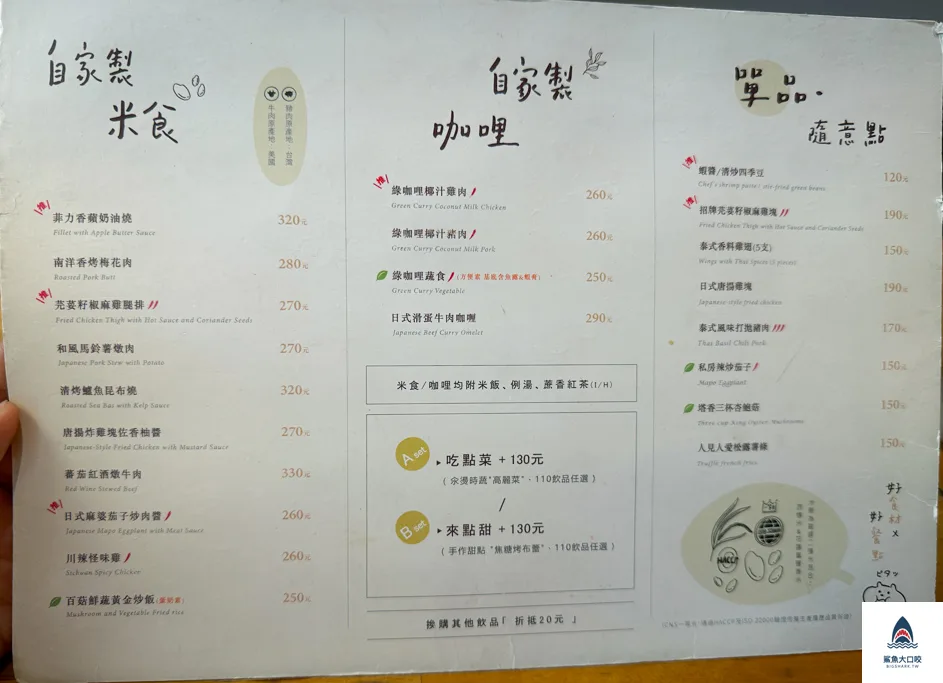 自家製
米食
豬肉原產地：台灣
牛肉原產地：美國
推
菲力香蘋奶油燒 320元
Fillet with Apple Butter Sauce
南洋香烤梅花肉 280元
Roasted Pork Butt
推
芫荽籽椒麻雞腿排 270元
Fried Chicken Thigh with Hot Sauce and Coriander Seeds
和風馬鈴薯燉肉 270元
Japanese Pork Stew with Potato
清烤鱸魚昆布燒 320元
Roasted Sea Bas with Kelp Sauce
唐揚炸雞塊佐香柚醬 270元
Japanese-Style Fried Chicken with Mustard Sauce
蕃茄紅酒燉牛肉 330元
Red Wine Stewed Beef
推
日式麻婆茄子炒肉醬 260元
Japanese Mapo Eggplant with Meat Sauce
川辣怪味雞 260元
Sichuan Spicy Chicken
百菇鮮蔬黃金炒飯(蛋奶素) 250元
Mushroom and Vegetable Fried rice
自家製
咖哩
推
綠咖哩椰汁雞肉 260元
Green Curry Coconut Milk Chicken
綠咖哩椰汁豬肉 260元
Green Curry Coconut Milk Pork
綠咖哩蔬食 (方便素 基底含魚露&蝦膏) 250元
Green Curry Vegetable
日式滑蛋牛肉咖喱 290元
Japanese Beef Curry Omelet
米食/咖哩均附米飯、例湯、蔗香紅茶(I/H)
A set ▸ 吃點菜 + 130元
( 汆燙時蔬"高麗菜"、110飲品任選 )
/
B set ▸ 來點甜 + 130元
( 手作甜點 "焦糖烤布蕾"、110飲品任選 )
挨購其他飲品「 折抵20元 」
單品.
隨意點
推
蝦醬/清炒四季豆 120元
Chef's shrimp paste / stir-fried green beans
推
招牌芫荽籽椒麻雞塊 190元
Fried Chicken Thigh with Hot Sauce and Coriander Seeds
泰式香料雞翅(5支) 150元
Wings with Thai Spices (5 pieces)
日式唐揚雞塊 190元
Japanese style fried chicken
泰式風味打拋豬肉 170元
Thai Basil Chili Pork
私房辣炒茄子 150元
Mapo Eggplant
塔香三杯杏鮑菇 150元
Three cup King Oyster Mushrooms
人見人愛松露薯條 150元
Truffle french fries
HACCP
好食材
x
好餐點
ピタッ
鯊魚大口咬
BIGSHARK.TW